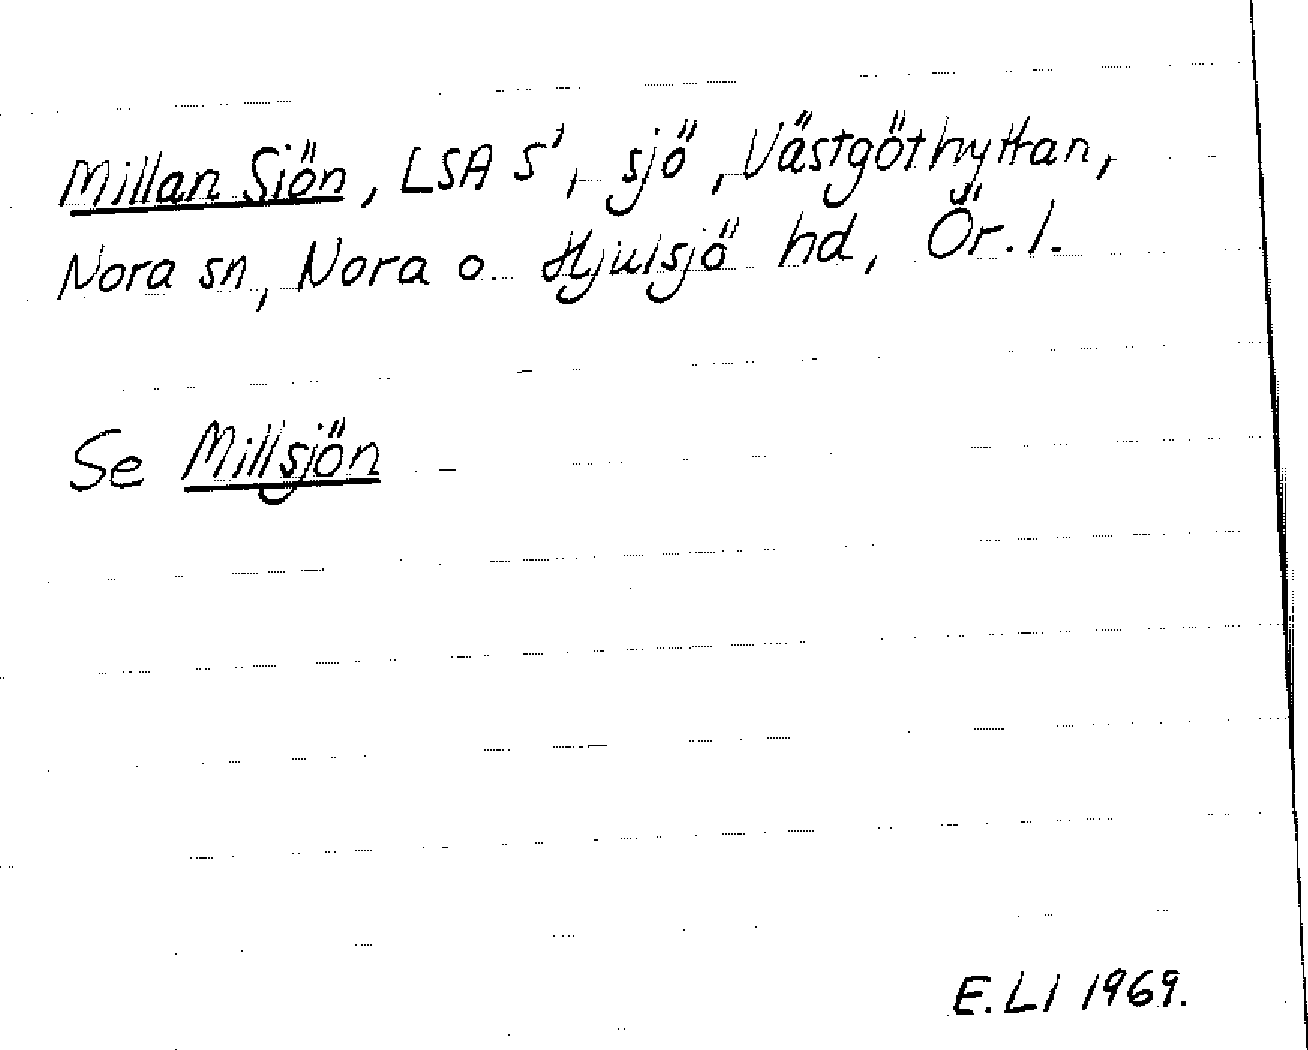 Millan Siön, LSA S', sjö, Västgöthyttan,
Nora sn, Nora o Hjulsjö hd, Ör. l.
Se Millsjön
E. LI 1969.